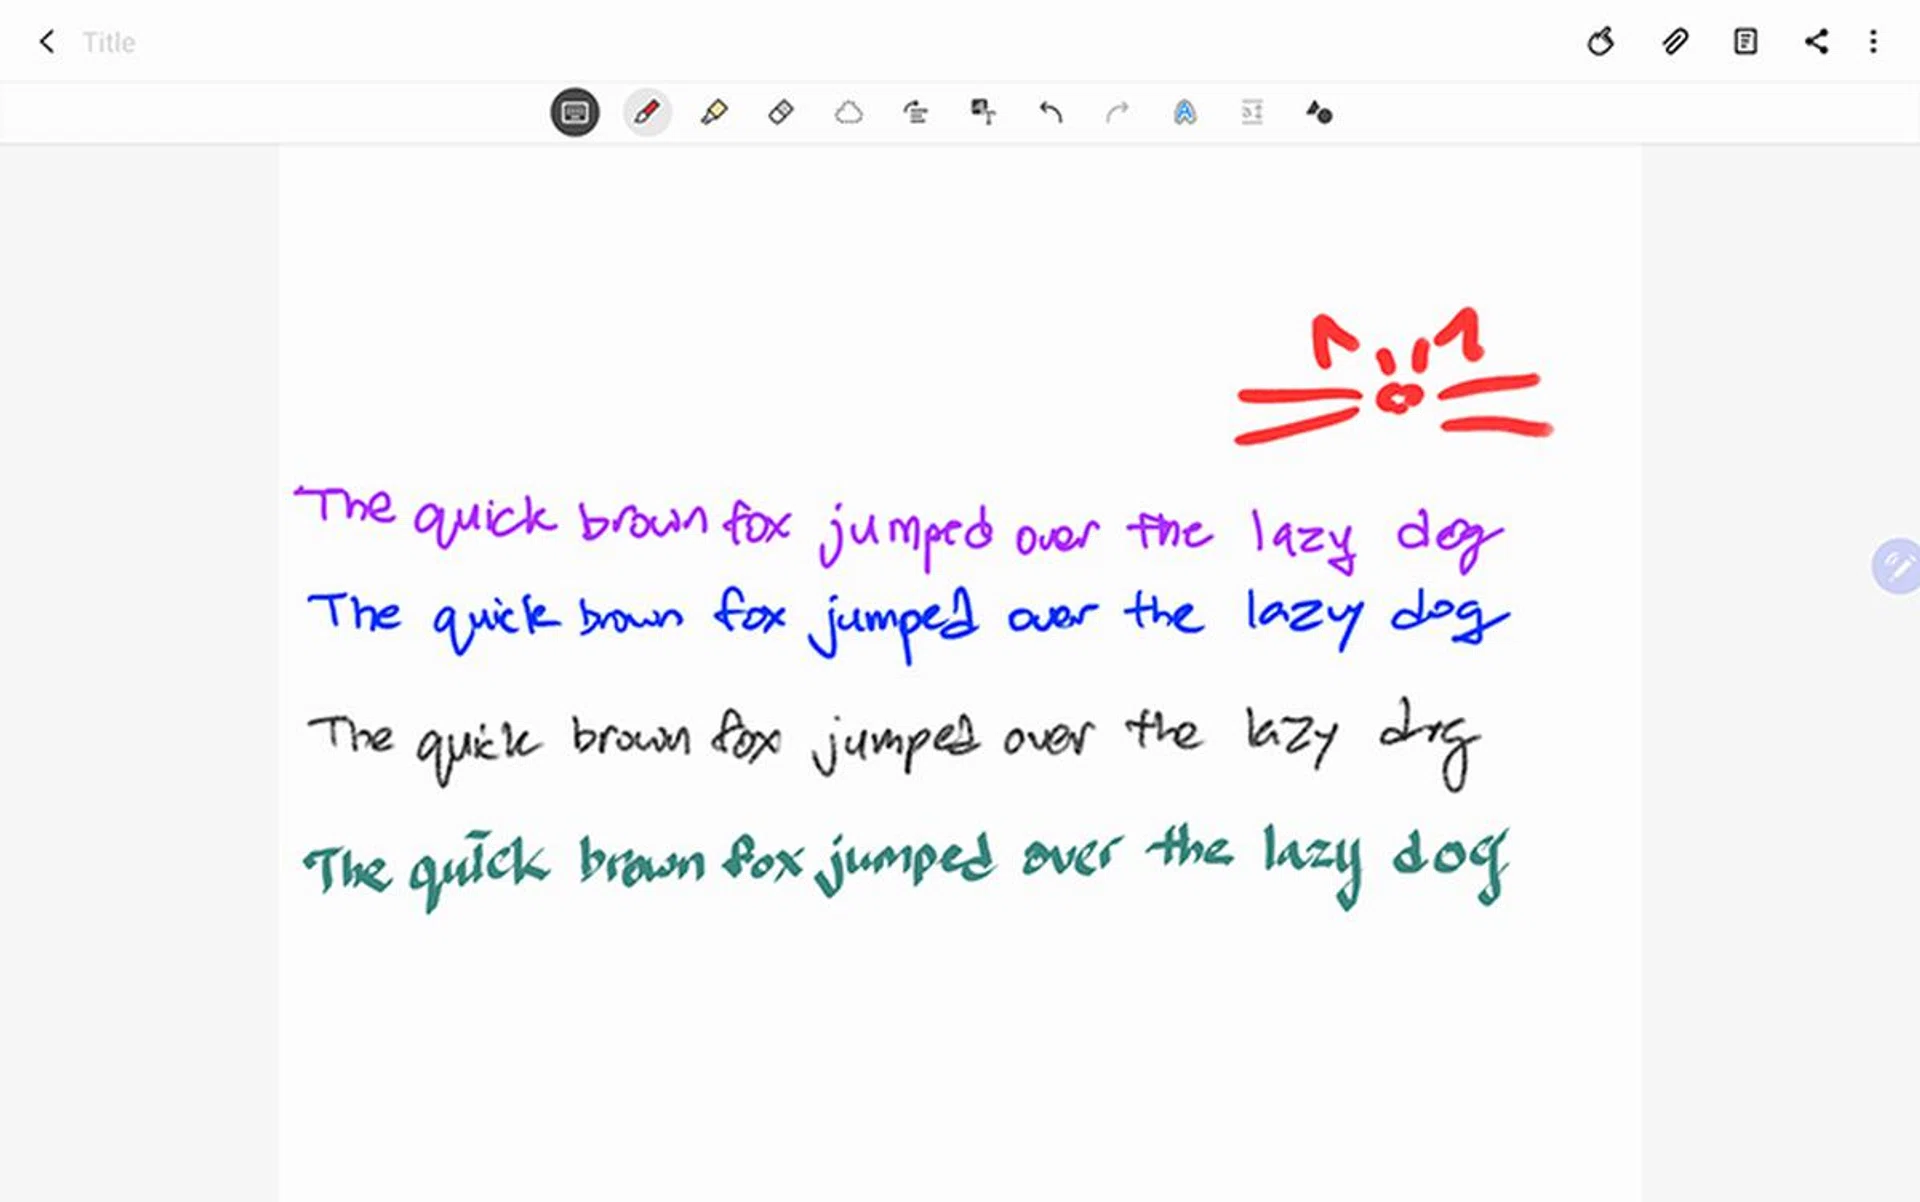 Title
The quick brown fox jumped over the lazy dog
The quick brown fox jumped over the lazy dog
The quick brown fox jumped over the lazy dog
The quick brown fox jumped over the lazy dog